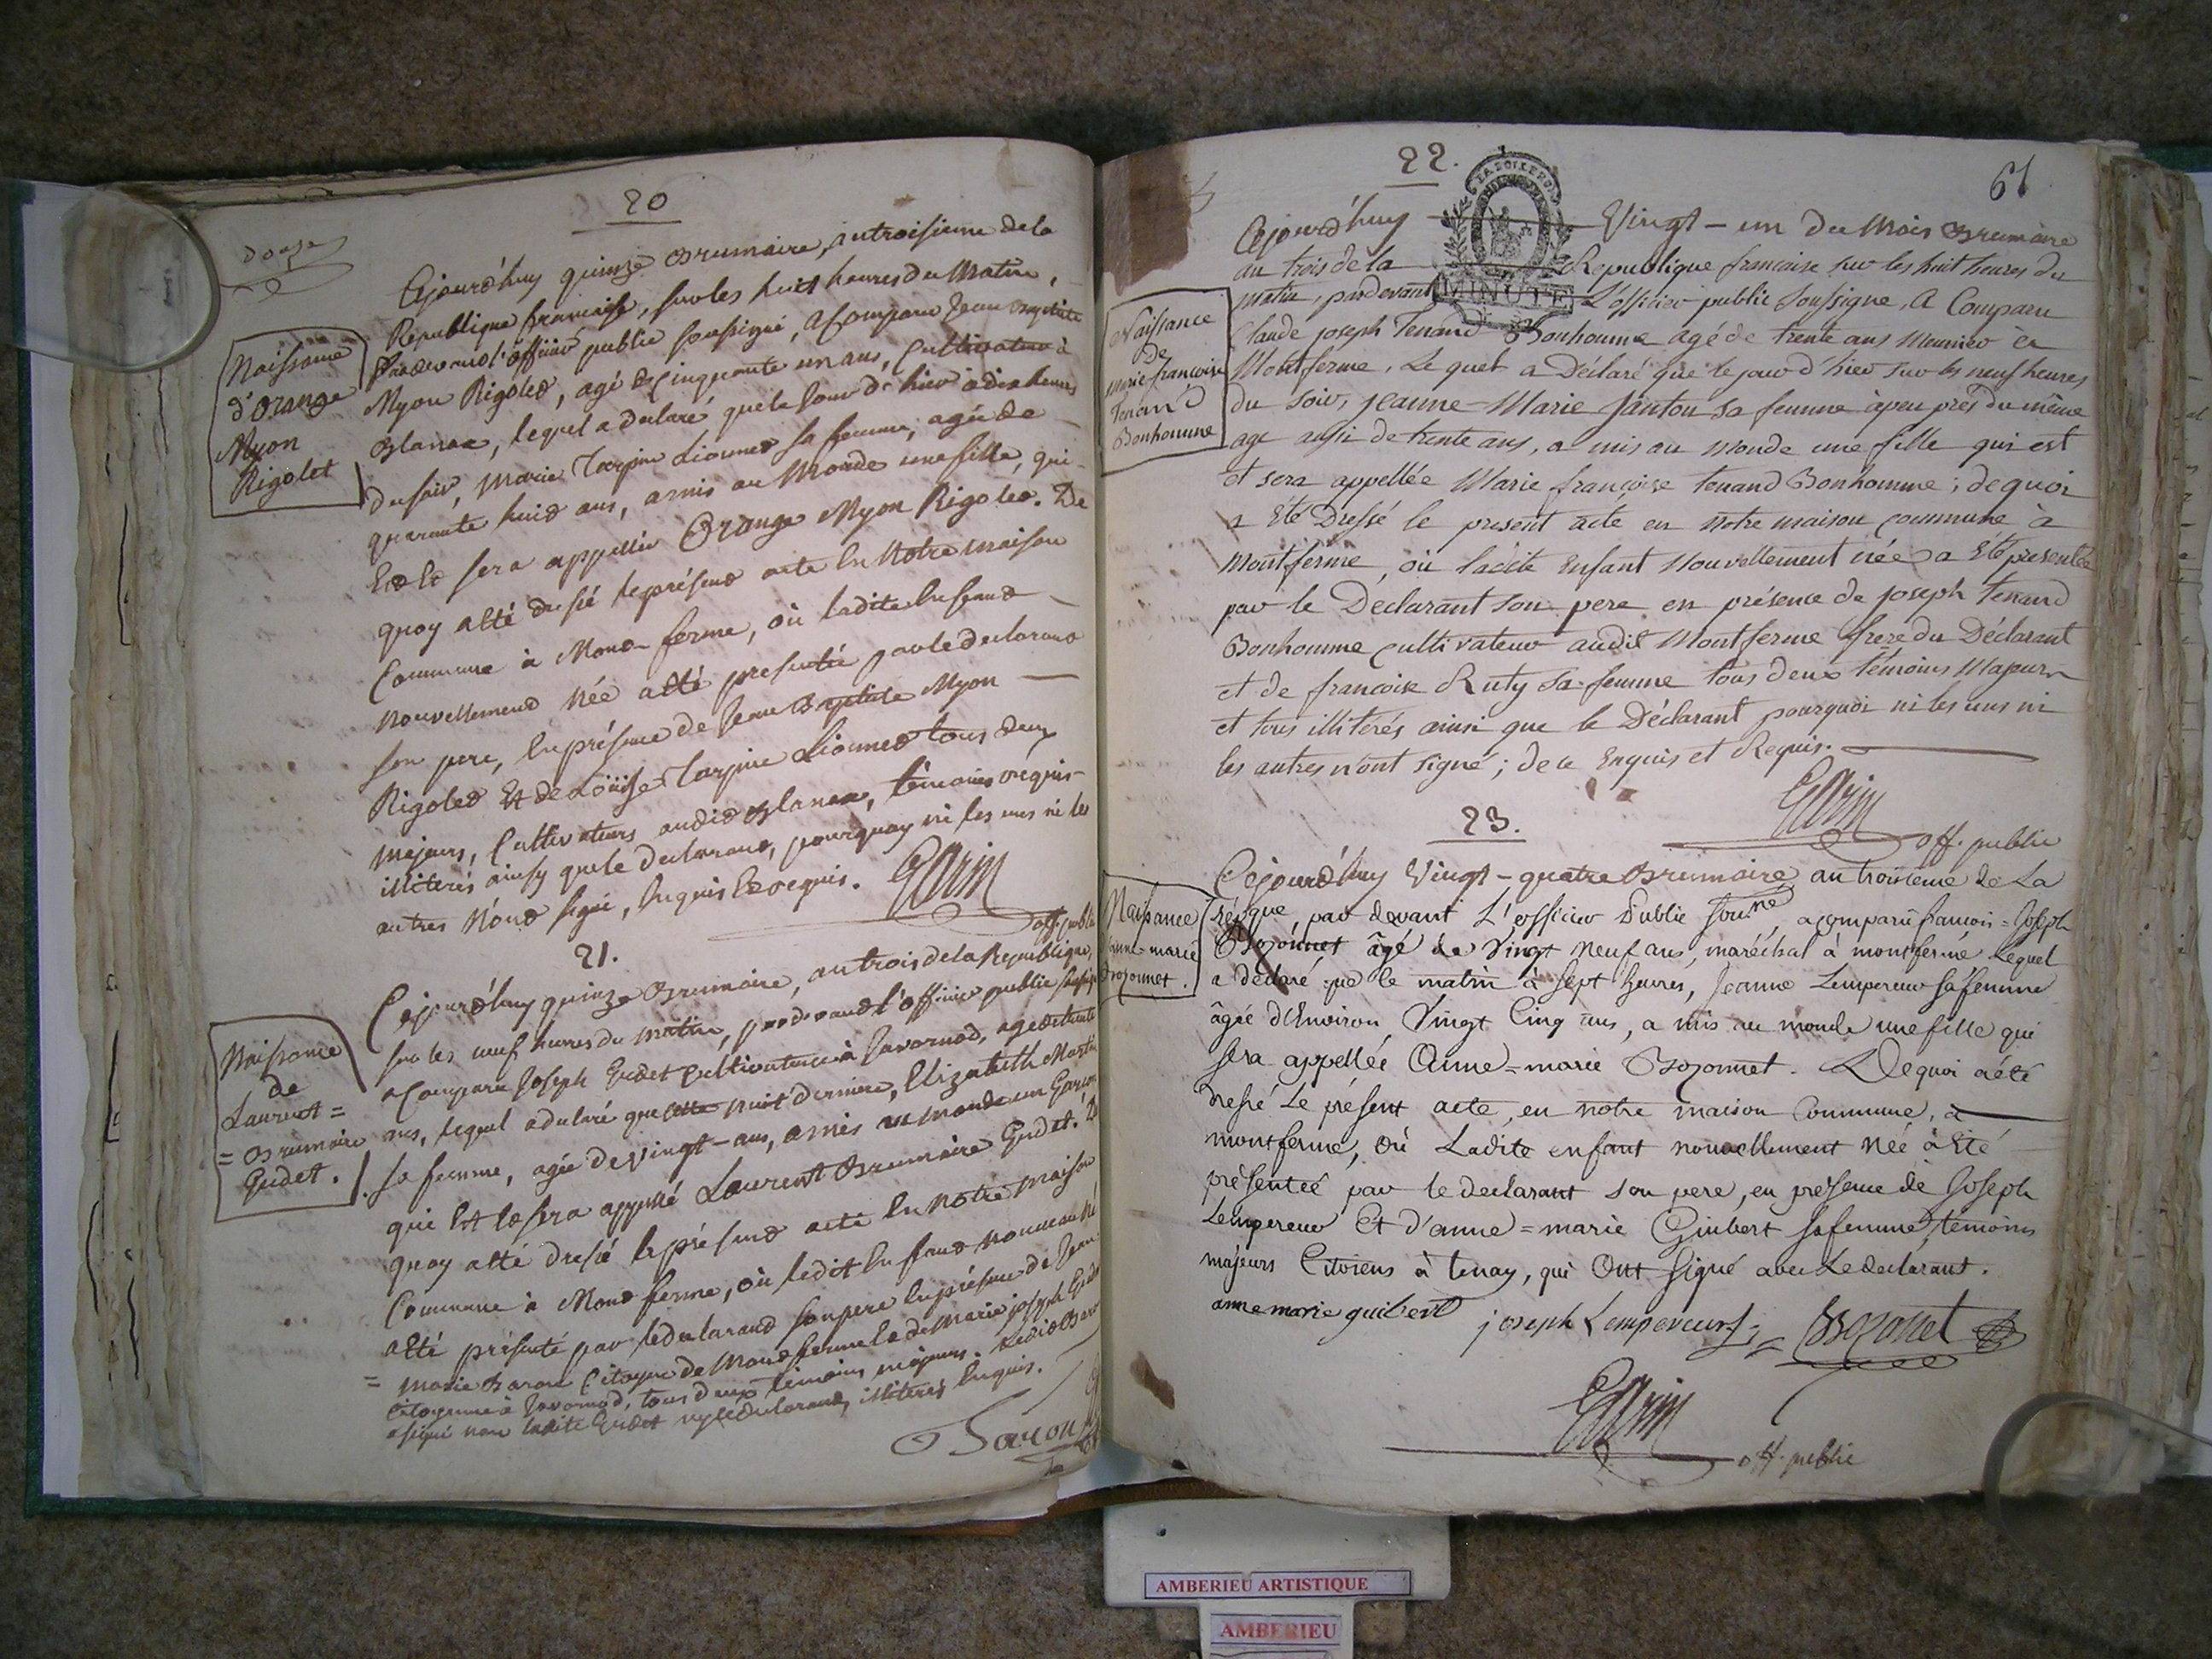 20
douze
Naissance
d'Orange
Myon
Rigolet
Cejourd'huy quinze Brumaire, an troisieme de la
Republique francaise, sur les huit heures du Matin,
pardevand l'officier public soussigné, a Comparu Jean Baptiste
Myon Rigoled, agé de Cinquante un ans, Cultivateur à
Blanaz, lequel a declaré que le jour d'hier à dix heures
du soir, Marie Tarpin Lionned sa femme, agée de
quarante huid ans, a mis au Monde une fille, qui
Est Et sera appellée Orange Myon Rigoled. De
quoy a Eté dressé le présend acte En Notre maison
Commune à Mond-ferme, où ladite Enfand
nouvellemend Née a Eté presentée par le declarand
son pere, En présence de Jean Baptiste Myon
Rigoled Et de Louise Tarpin Lionned tous deux
majeurs, Cultivateurs audid Blanaz, témoins requis
illiterés ainsy que le declarand, pourquoy ni les uns ni les
autres N'ond signé, Enquis Et requis. Garin
off. public
21.
Naissance
de
Laurent =
= Brumaire
Gudet.
Cejourd'huy quinze Brumaire, an trois de la Republique,
sur les neuf heures du matin, pardevand l'officier public soussigné
a Comparu Joseph Gudet Cultivateur à Javornod, agé de trente
ans, lequel a declaré que cette nuit derniere, Elizabeth Martin
sa femme, agée de vingt-ans, a mis au monde un Garcon
qui Est Et sera appellé Laurent Brumaire Gudet. De
quoy a Eté dressé le présend acte En Notre maison
Commune à Mond ferme, où ledit Enfand nouveau né
a Eté présenté par le declarand son pere En présence de Jean
= Marie Baron Citoyen de Mondferme Et de Marie joseph Gudet
Citoyenne à Javornod, tous deux témoins majeurs. Ledid Baron
a signé non ladite Gudet ny le declarand, illiterés Enquis.
Baron
22.
61
MINUTE
Naissance
de
Marie francoise
Tenand
Bonhomme
Cejourd'huy Vingt-un du Mois Brumaire
an trois de la Republique francaise sur les huit heures du
matin, pardevant L'officier public soussigné, A Comparu
Claude joseph Tenand Bonhomme agé de trente ans Meunier à
Montferme, Lequel a Déclaré que le jour d'hier sur les neuf heures
du soir, jeanne-Marie Janton sa femme à peu près du même
age aussi de trente ans, a mis au monde une fille qui est
et sera appellée Marie françoise tenand Bonhomme; de quoi
a Eté Dressé le present acte en Notre maison commune à
Montferme, où ladite Enfant Nouvellement née a Eté présentée
par le Declarant son pere en présence de joseph Tenand
Bonhomme cultivateur audit Montferme frere du Déclarant
et de francoise Ruty sa femme tous deux témoins Majeurs
et tous illitérés ainsi que le Déclarant pourquoi ni les uns ni
les autres n'ont signé; de ce Enquis et Requis.
Garin
off. public
23.
Naissance
d'anne-marie
Bozonnet.
Cejourd'huy Vingt-quatre Brumaire an troisieme de La
rép.que par devant L'officier Public sou.né a comparu francois=Joseph
Bozonnet âgé de Vingt Neuf ans, maréchal à montferme Lequel
a declaré que le matin à sept heures, Jeanne Lempereur sa femme
âgée d'Environ Vingt Cinq ans, a mis au monde une fille qui
sera appellée Anne=marie Bozonnet. De quoi a été
dressé Le présent acte, en notre maison Commune, à
montferme, où Ladite enfant nouvellement Née à Eté
présentée par le declarant son pere, en présence de Joseph
Lempereur Et d'anne=marie Guibert sa femme, temoins
majeurs Citoiens à tenay, qui Ont signé avec Le declarant.
anne marie guibert joseph Lempereur Bozonet
Garin
off. public
AMBERIEU ARTISTIQUE
AMBERIEU